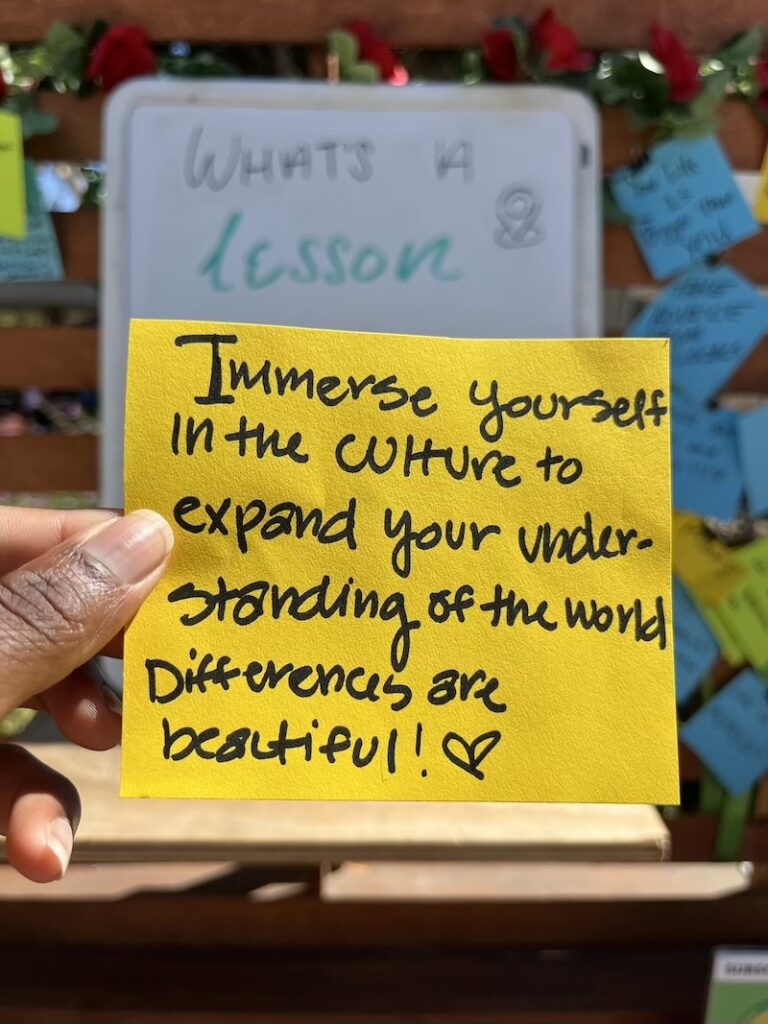 WHAT'S A
lesson
Immerse yourself
in the culture to
expand your under-
standing of the world
Differences are
beautiful!
SUBSC